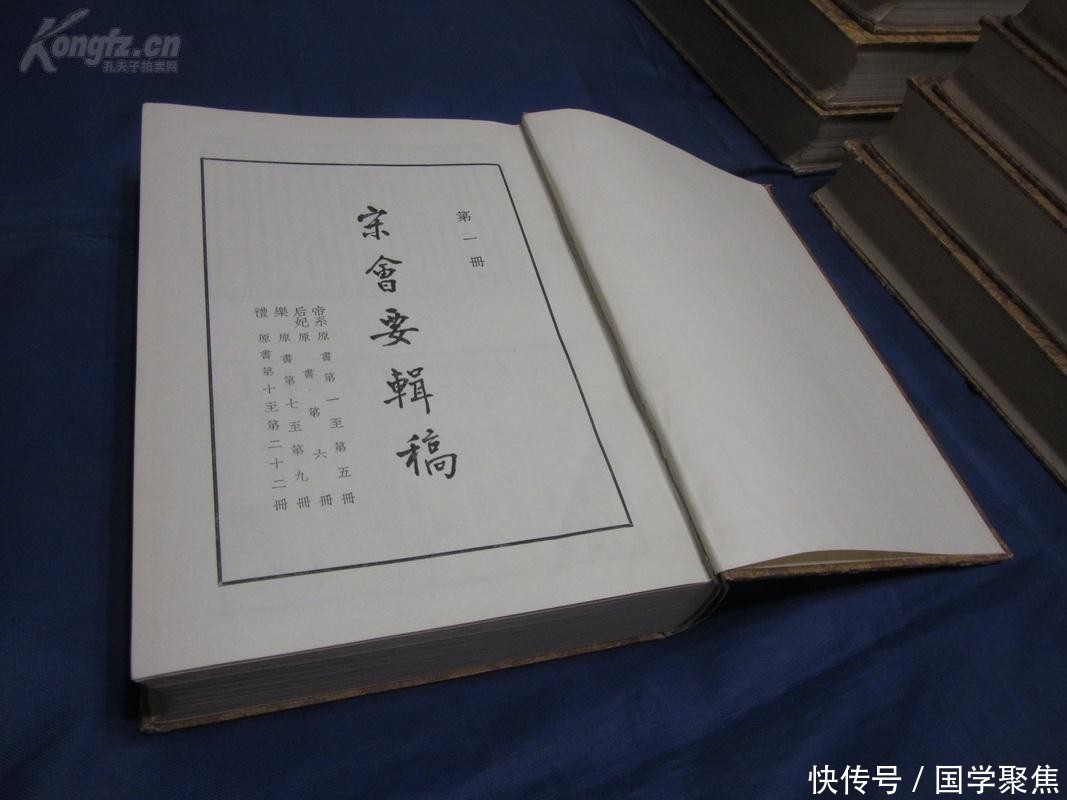 Kongfz.cn
孔夫子拍卖网
第一冊
宋會要輯稿
帝系 原書第一至第五冊
后妃 原書·第六冊
樂 原書第七至第九冊
禮 原書第十至第二十二冊
快传号 / 国学聚焦